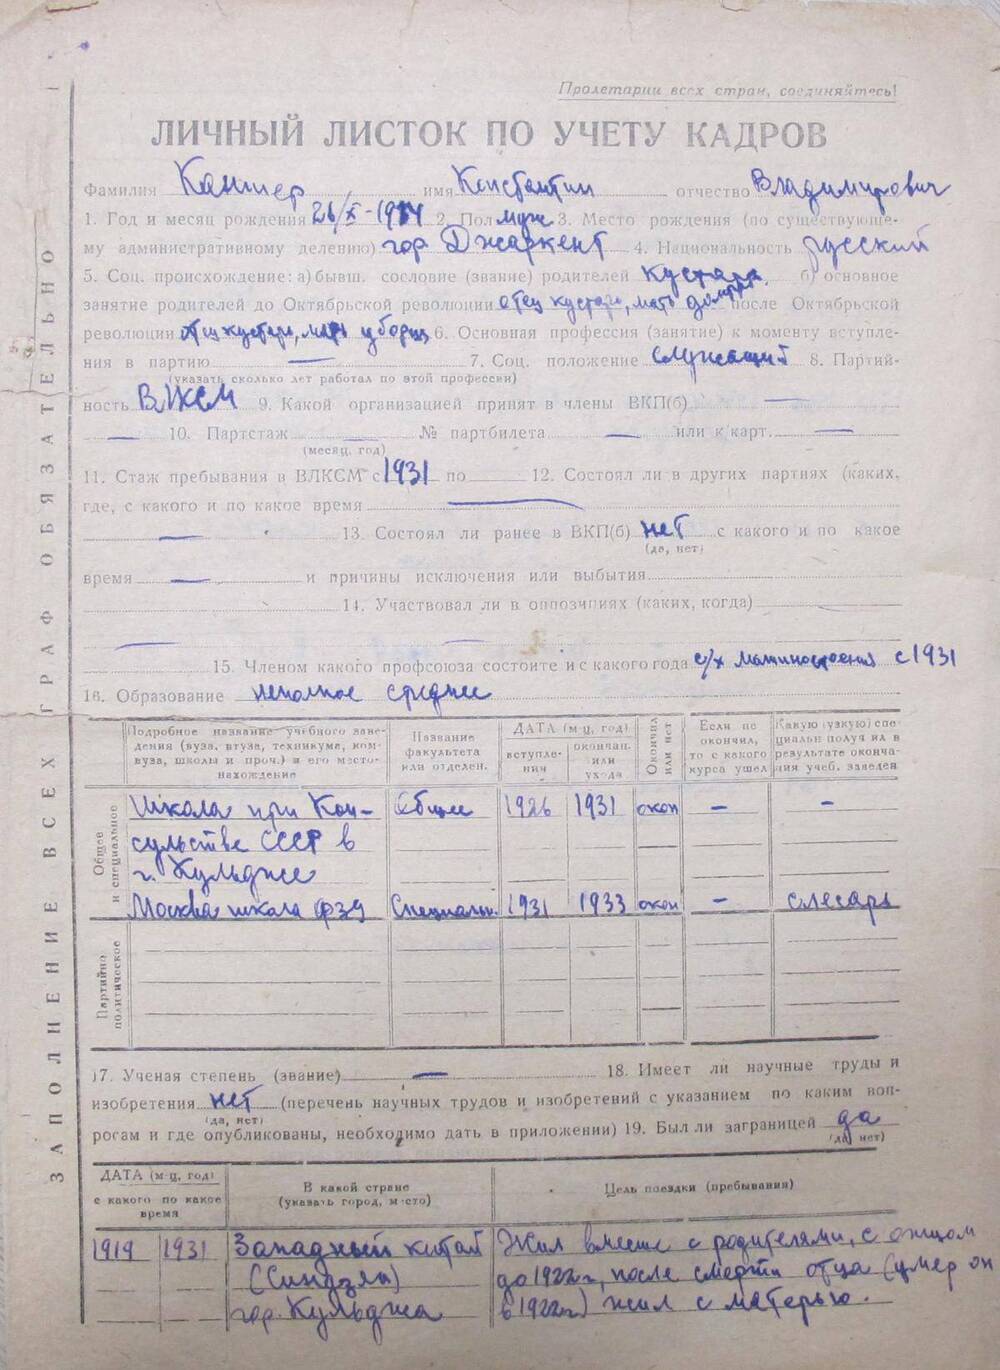 Пролетарии всех стран, соединяйтесь!
ЛИЧНЫЙ ЛИСТОК ПО УЧЕТУ КАДРОВ
ЗАПОЛНЕНИЕ ВСЕХ ГРАФ ОБЯЗАТЕЛЬНО
Фамилия имя Константин отчество Владимирович
1. Год и месяц рождения 26/X-1914 2. Пол муж 3. Место рождения (по существующе-
му административному делению) гор Джаркент 4. Национальность русский
5. Соц. происхождение: а) бывш. сословие (звание) родителей кустарь б) основное
занятие родителей до Октябрьской революции отец кустарь, мать после Октябрьской
революции отец кустарь, мать уборщ 6. Основная профессия (занятие) к моменту вступле-
ния в партию — 7. Соц. положение служащий 8. Партий-
(указать сколько лет работал по этой профессии)
ность ВЛКСМ 9. Какой организацией принят в члены ВКП(б) —
— 10. Партстаж — № партбилета — или к карт. —
(месяц, год)
11. Стаж пребывания в ВЛКСМ с 1931 по 12. Состоял ли в других партиях (каких,
где, с какого и по какое время —
— 13. Состоял ли ранее в ВКП(б) нет с какого и по какое
(да, нет)
время — и причины исключения или выбытия
14. Участвовал ли в оппозициях (каких, когда)
— —
15. Членом какого профсоюза состоите и с какого года с/х машиностроения с 1931
16. Образование неполное среднее
Подробное название учебного заве-дения (вуза, втуза, техникума, ком-вуза, школы и проч.) и его место-нахождение
Название факультета или отделен.
ДАТА (м-ц, год)
вступле-ния
окончан. или ухода
Окончил или нет
Если не окончил, то с какого курса ушел
Какую (узкую) спе-циальн получил в результате оконча-ния учеб. заведен
Общее и специальное
Школа при Кон- Общее 1926 1931 окон — —
сульстве СССР в
г. Кульдже
Москва школа ФЗУ Специальн. 1931 1933 окон — слесарь
Партийно политическое
17. Ученая степень (звание) — 18. Имеет ли научные труды и
изобретения нет (перечень научных трудов и изобретений с указанием по каким воп-
(да, нет)
росам и где опубликованы, необходимо дать в приложении) 19. Был ли заграницей да
(да нет)
ДАТА (м-ц, год)
с какого по какое время
В какой стране
(указать город, место)
Цель поездки (пребывания)
1919 1931 Западный китай Жил вместе с родителями, с отцом
(Синдзян) до 1922 г, после смерти отца (умер он
гор. Кульджа в 1922 г) жил с матерью.